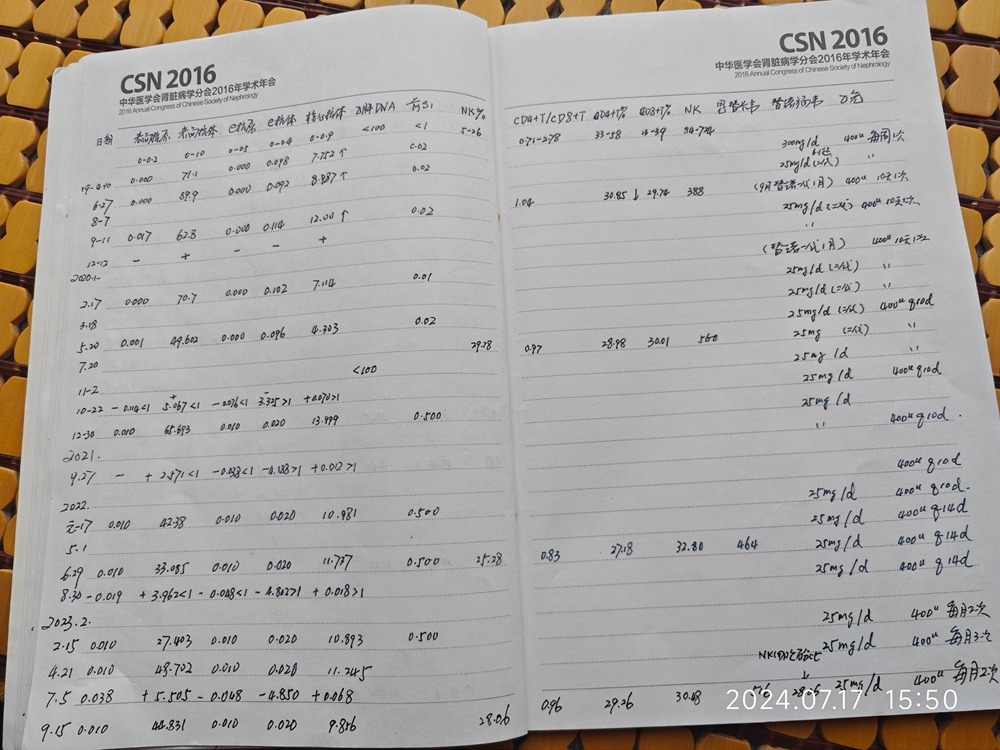 CSN 2016
中华医学会肾脏病学分会2016年学术年会
2016 Annual Congress of Chinese Society of Nephrology
日期 表面抗原 表面抗体 e抗原 e抗体 核心抗体 DNA 前S1 NK%
0-0.2 0-10 0-0.5 0-0.4 0-0.9 <100 <1 5-26
0.000 71.1 0.000 0.098 7.252↑ 0.02
6-27 0.000 89.9 0.000 0.092 8.887↑ 0.02
8-7
9-11 0.017 62.8 0.000 0.114 12.00↑ 0.02
12-12 - + - - +
2020-1-
2.17 0.000 70.7 0.000 0.102 7.114 0.01
3.18
5.20 0.001 49.602 0.000 0.096 4.303 0.02
7.20 29.78
11-2 <100
10-22 - 0.114<1 + 5.067<1 -0.076<1 3.325>1 +0.070>1
12-30 0.010 65.693 0.010 0.020 13.899 0.500
2021.
9.27 - + 2.571<1 -0.033<1 -4.133>1 +0.012>1
2022.
元-17 0.010 42.38 0.010 0.020 10.981 0.500
5.1
6.29 0.010 33.085 0.010 0.020 11.757 0.500 25.28
8.30 -0.019 +3.962<1 -0.048<1 -4.802>1 +0.018>1
2023.2.
2.15 0.010 27.403 0.010 0.020 10.893 0.500
4.21 0.010 48.702 0.010 0.020 11.245
7.5 0.038 +5.505 -0.048 -4.850 +0.068
9.15 0.010 44.831 0.010 0.020 9.856 28.06
CSN 2016
中华医学会肾脏病学分会2016年学术年会
2016 Annual Congress of Chinese Society of Nephrology
CD4+T/CD8+T CD4+T% CD8+T% NK 恩替卡韦 替诺福韦
0.71-2.78 33-58 13-39 84-724
300mg/d 400u 每周1次
25mg/d (二代) 〃
1.04 30.85↓ 29.74 388 (9月替诺一代1月) 400u 10天1次
25mg/d (二代) 400u 10天1次
〃
(替诺一代1月) 400u 10天1次
25mg/d (二代) 〃
25mg/d (二代) 〃
25mg/d (二代) 400u q10d
0.97 28.98 30.01 560 25mg (二代) 〃
25mg/d 〃
25mg/d 400u q10d
25mg/d
〃 400u q10d.
400u q10d
25mg/d 400u q10d.
25mg/d 400u q14d
0.83 27.18 32.80 464 25mg/d 400u q14d
25mg/d 400u q14d
25mg/d 400u 每月2次
25mg/d 400u 每月3次
0.96 29.26 30.48 25mg/d 400u 每月2次
2024.07.17 15:50